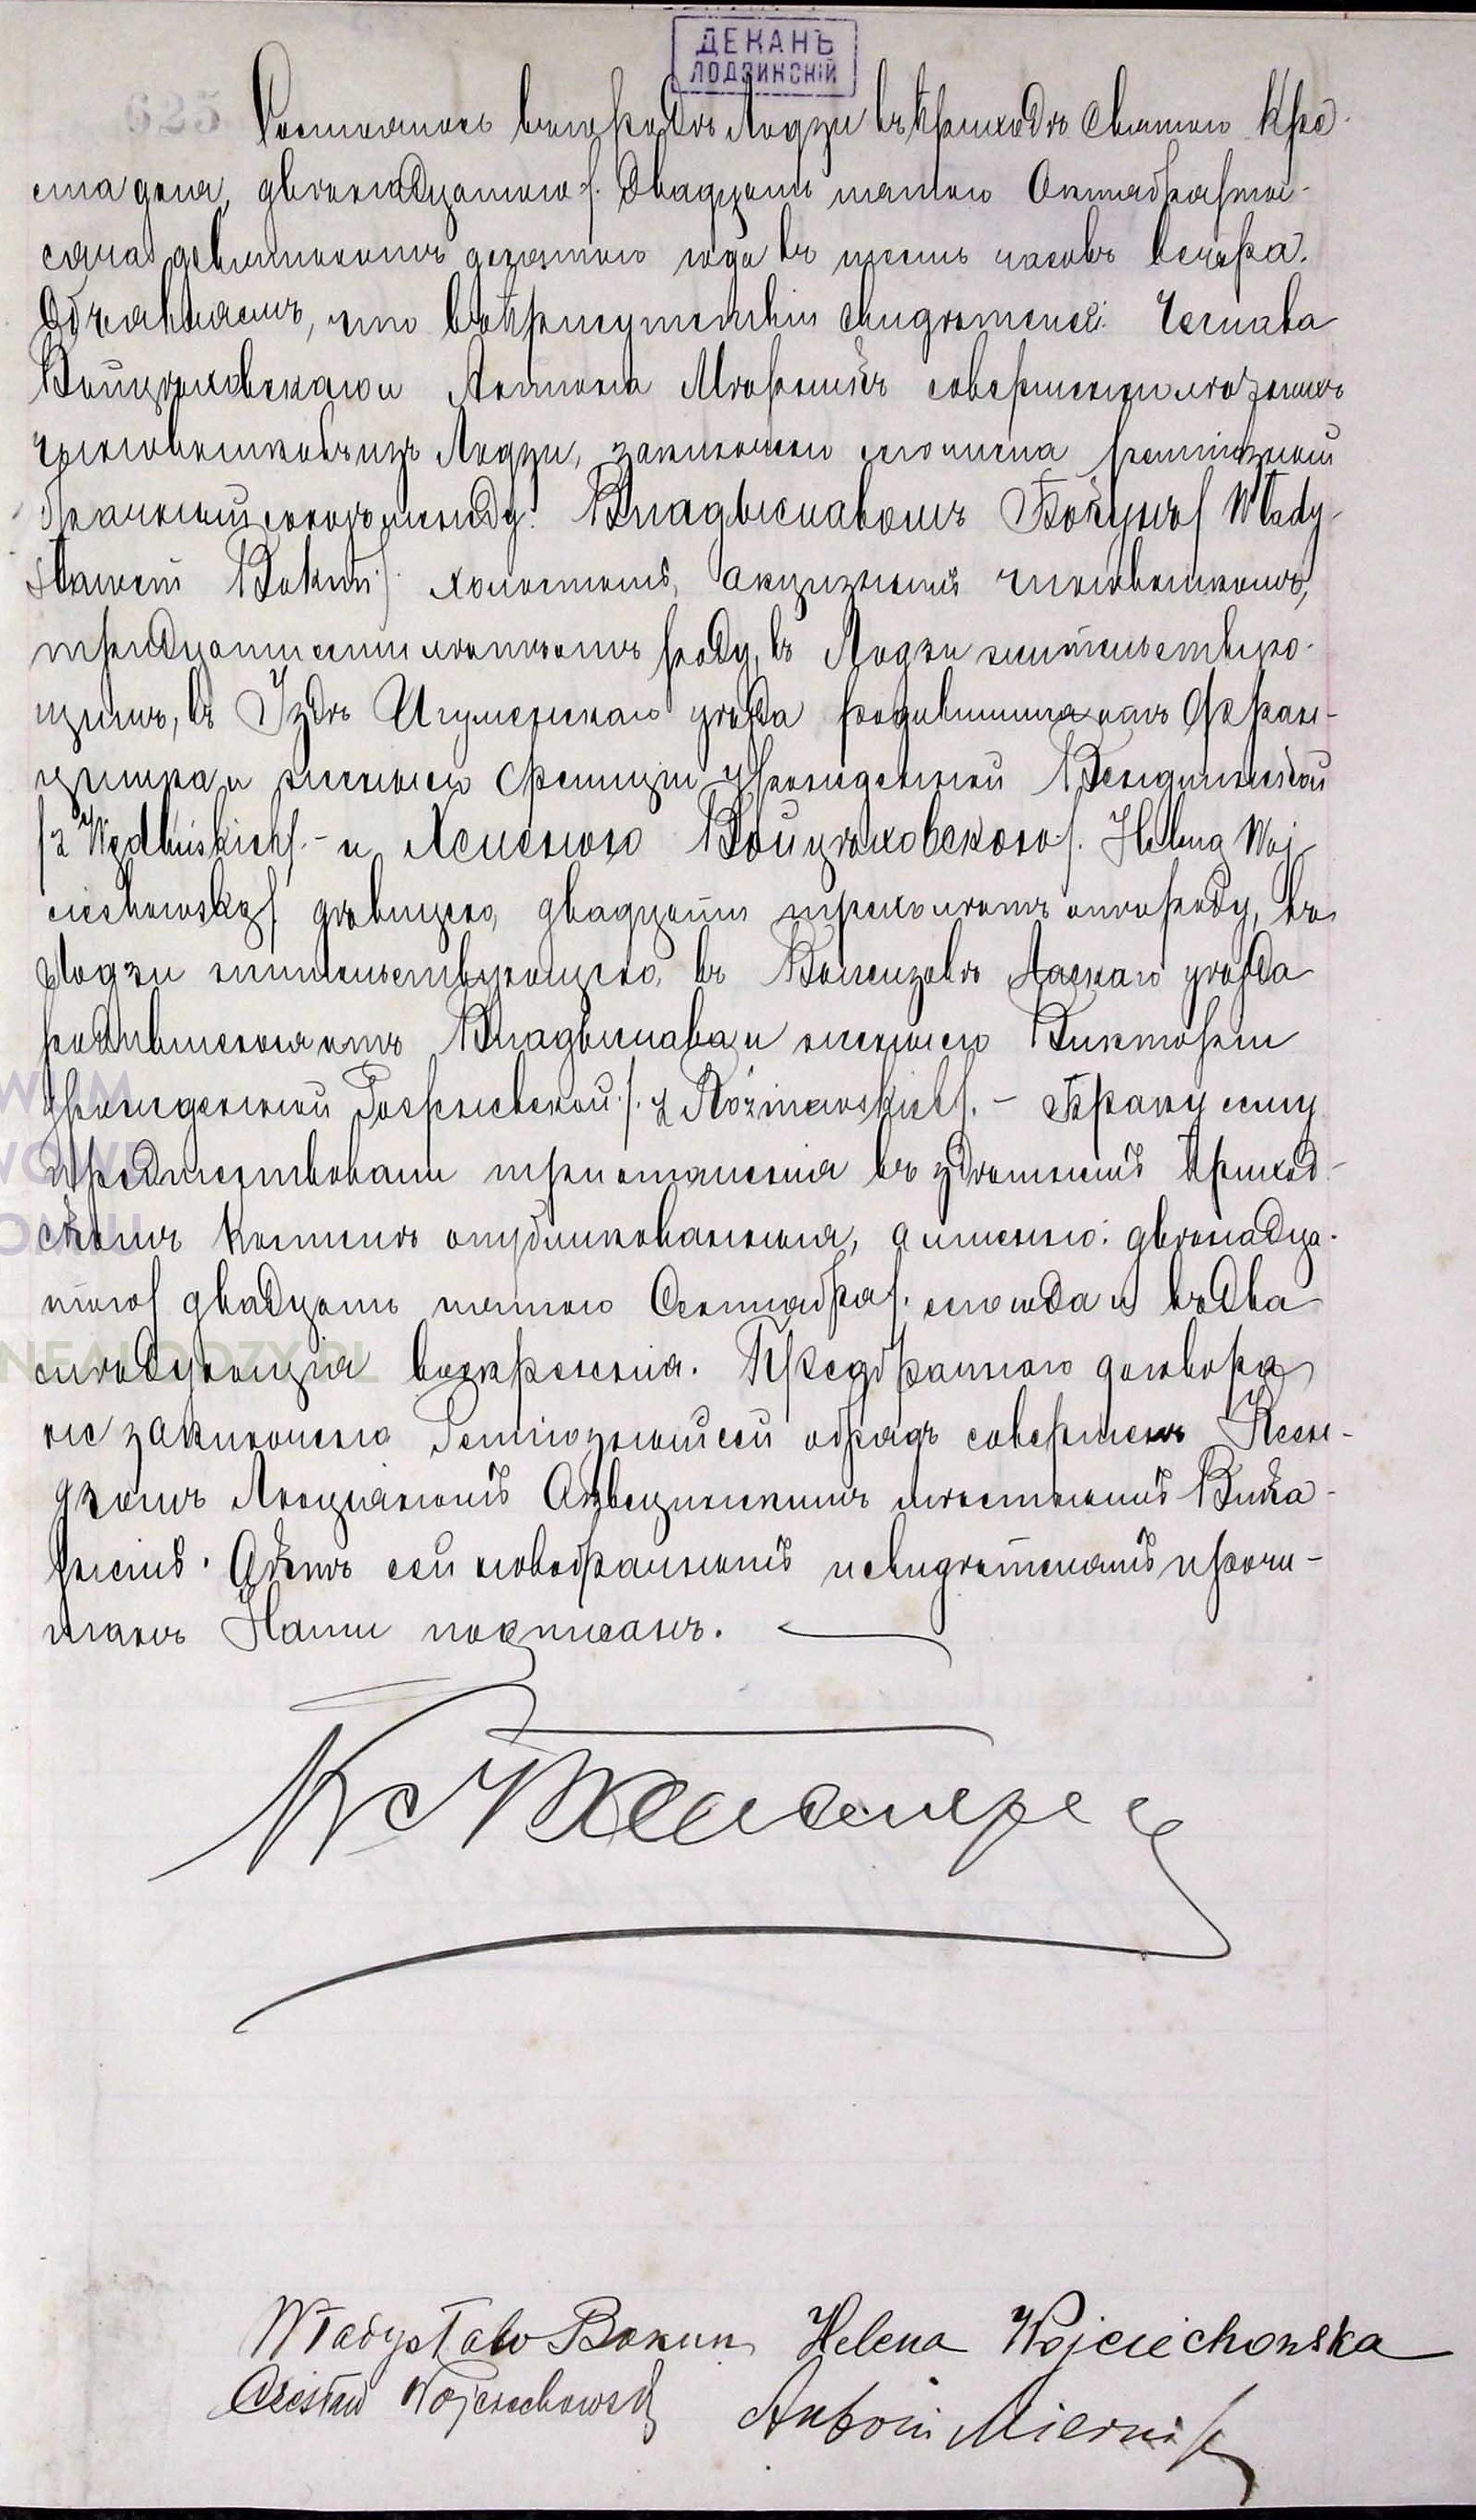 ДЕКАНЪ
ЛОДЗИНСКІЙ
625 Состоялось въ городѣ Лодзи въ приходѣ Святого Кре-
ста дня двѣнадцатаго /:двадцать пятаго Октября/ ты-
сяча девятьсотъ десятаго года въ шесть часовъ вечера.
Объявляемъ, что въ присутствіи свидѣтелей: Чеслава
Войцѣховскаго и Антона Мѣрникъ совершеннолѣтнихъ
изъ Лодзи, заключенъ сего числа религіозный
брачный союзъ между: Владыславомъ Бокунъ/ Włady-
sławem Bokun:/ холостымъ, акцизнымъ чиновникомъ,
тридцати семи лѣтъ отъ роду, въ Лодзи жительствую-
щимъ, въ Уздѣ Игуменскаго уѣзда родившимся отъ Фран-
цишка и жены его урожденной
/z Wędlińskich/.- и Хеленою Войцѣховскою/. Heleną Woj-
ciechowską/ дѣвицею, двадцати трехъ лѣтъ отъ роду, въ
Лодзи жительствующею, въ Ласкаго уѣзда
родившеюся отъ Владыслава и жены его Викторіи
урожденной /. z Rożniewskich/. - Браку сему
предшествовали три оглашенія въ здѣшнемъ приход-
скомъ костелѣ опубликованныя, а именно: двѣнадца-
таго/ двадцать пятаго Сентября/. сего года и въ два
слѣдующія воскресенія. Предбрачнаго договора
не заключено Религіозный сей обрядъ совершенъ Ксен-
дзомъ мѣстнымъ Вика-
ріемъ. Актъ сей новобрачнымъ и свидѣтелямъ прочи-
танъ Нами подписанъ.
Władysław Bokun Helena Wojciechowska
Czesław Wojciechowski Antoni Miernik